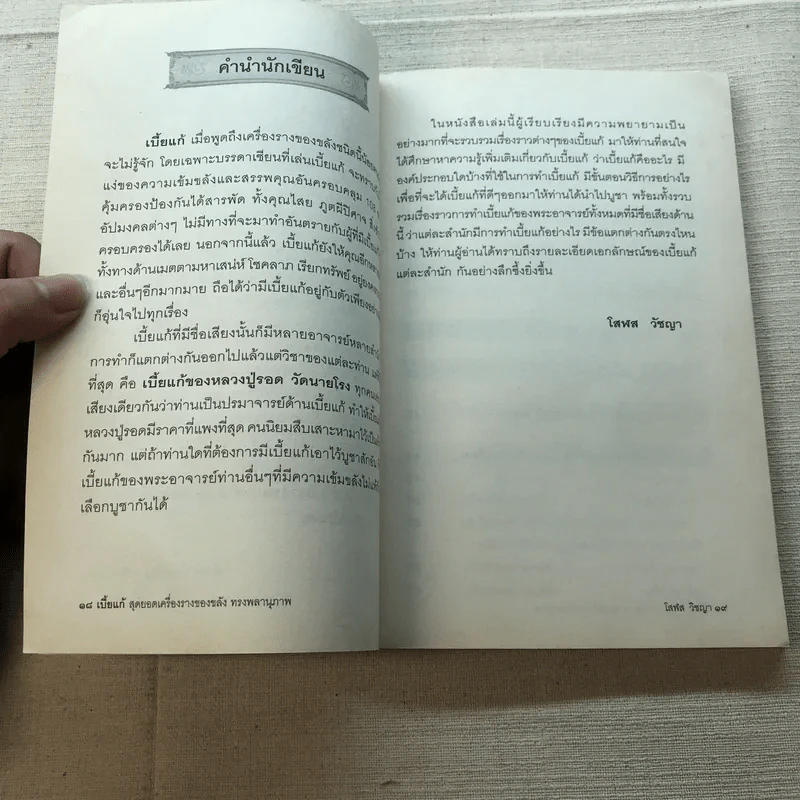 คำนำนักเขียน
เบี้ยแก้ เมื่อพูดถึงเครื่องรางของขลังชนิดนี้
จะไม่รู้จัก โดยเฉพาะบรรดาเซียนที่เล่นเบี้ยแก้
แง่ของความเข้มขลังและสรรพคุณอันครอบคลุม 108
คุ้มครองป้องกันได้สารพัด ทั้งคุณไสย ภูตผีปีศาจ
อัปมงคลต่างๆ ไม่มีทางที่จะมาทำอันตรายกับผู้ที่มีเบี้ยแก้
ครอบครองได้เลย นอกจากนี้แล้ว เบี้ยแก้ยังให้คุณอีก
ทั้งทางด้านเมตตามหาเสน่ห์ โชคลาภ เรียกทรัพย์
และอื่นๆอีกมากมาย ถือได้ว่ามีเบี้ยแก้อยู่กับตัวเพียง
ก็อุ่นใจไปทุกเรื่อง
เบี้ยแก้ที่มีชื่อเสียงนั้นก็มีหลายอาจารย์หลาย
การทำก็แตกต่างกันออกไปแล้วแต่วิชาของแต่ละท่าน
ที่สุด คือ เบี้ยแก้ของหลวงปู่รอด วัดนายโรง
เสียงเดียวกันว่าท่านเป็นปรมาจารย์ด้านเบี้ยแก้ ทำให้
หลวงปู่รอดมีราคาที่แพงที่สุด คนนิยมสืบเสาะหามาไว้
กันมาก แต่ถ้าท่านใดที่ต้องการมีเบี้ยแก้เอาไว้บูชาสัก
เบี้ยแก้ของพระอาจารย์ท่านอื่นๆที่มีความเข้มขลัง
เลือกบูชากันได้
๑๘ เบี้ยแก้ สุดยอดเครื่องรางของขลัง ทรงพลานุภาพ
ในหนังสือเล่มนี้ผู้เรียบเรียงมีความพยายามเป็น
อย่างมากที่จะรวบรวมเรื่องราวต่างๆของเบี้ยแก้ มาให้ท่านที่สนใจ
ได้ศึกษาหาความรู้เพิ่มเติมเกี่ยวกับเบี้ยแก้ ว่าเบี้ยแก้คืออะไร มี
องค์ประกอบใดบ้างที่ใช้ในการทำเบี้ยแก้ มีขั้นตอนวิธีการอย่างไร
เพื่อที่จะได้เบี้ยแก้ที่ดีๆออกมาให้ท่านได้นำไปบูชา พร้อมทั้งรวบ
รวมเรื่องราวการทำเบี้ยแก้ของพระอาจารย์ทั้งหมดที่มีชื่อเสียงด้าน
นี้ ว่าแต่ละสำนักมีการทำเบี้ยแก้อย่างไร มีข้อแตกต่างกันตรงไหน
บ้าง ให้ท่านผู้อ่านได้ทราบถึงรายละเอียดเอกลักษณ์ของเบี้ยแก้
แต่ละสำนัก กันอย่างลึกซึ้งยิ่งขึ้น
โสฬส วัชญา
โสฬส วิชญา ๑๙